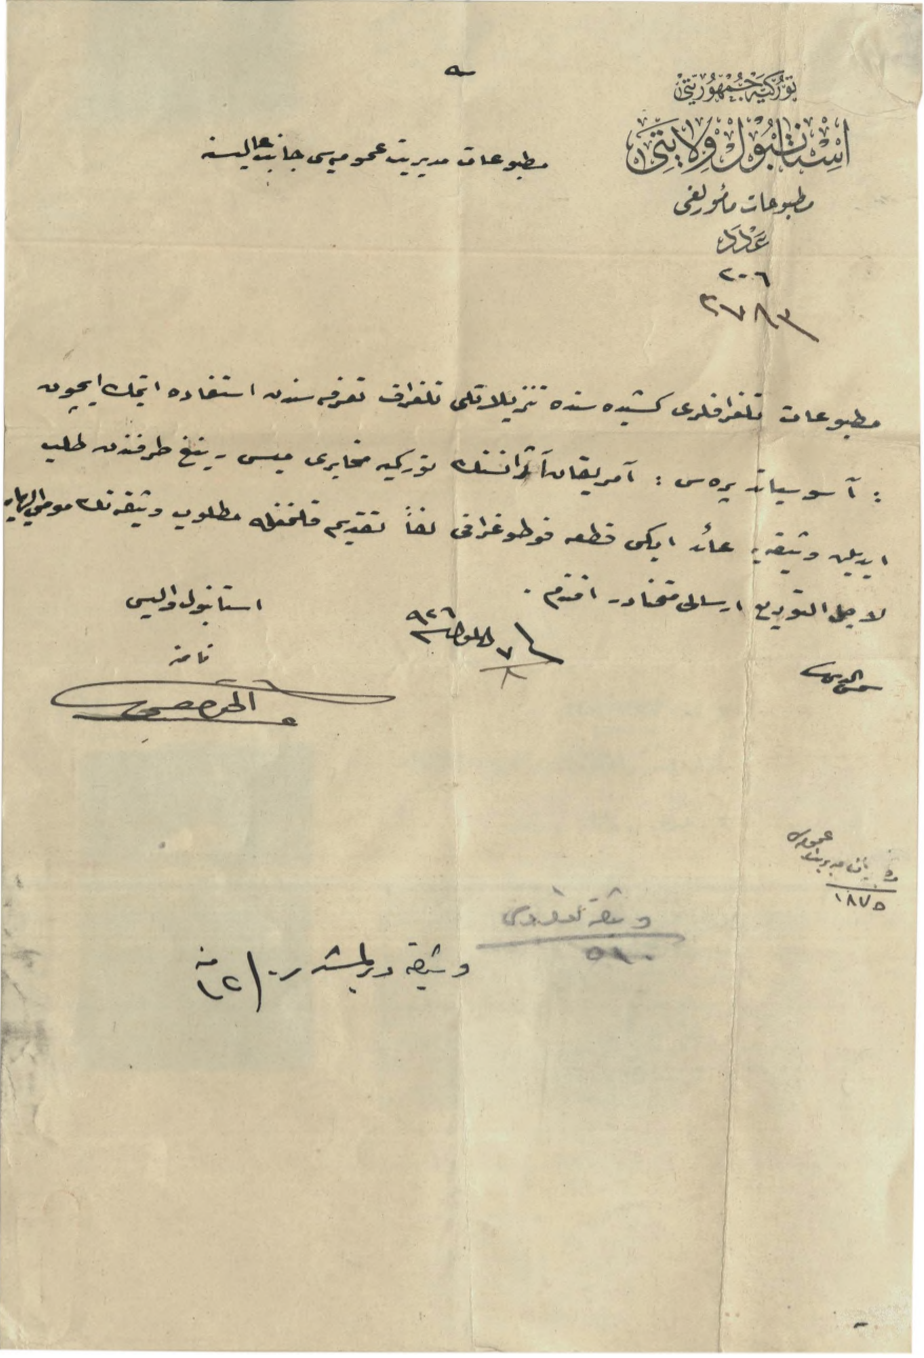 توركيه جمهوريتى
استانبول ولايتى
مطبوعات مأمورلغى
عدد
٢٠٦
مطبوعات مديريت عموميه سى جانب عاليسنه
مطبوعات تلغرافلرى كشيده سنده تنزيلاتلى تلغراف تعرفه سندن استفاده ايتمك ايچون
: آسوسياتد پره س : آمريقان آژانسنك توركيه مخابرى ميسى رينغ طرفندن طلب
ايديلن وثيقه يه عائد ايكى قطعه فوطوغرافى لفاً تقديم قلنمغله مطلوب وثيقه نك مومى اليهايه
لاجل التوديع ارسالى متمنادر افندم .
٩٢٦
استانبول واليسى
نامنه
١٨٧٥
وثيقه ويرلمشدر